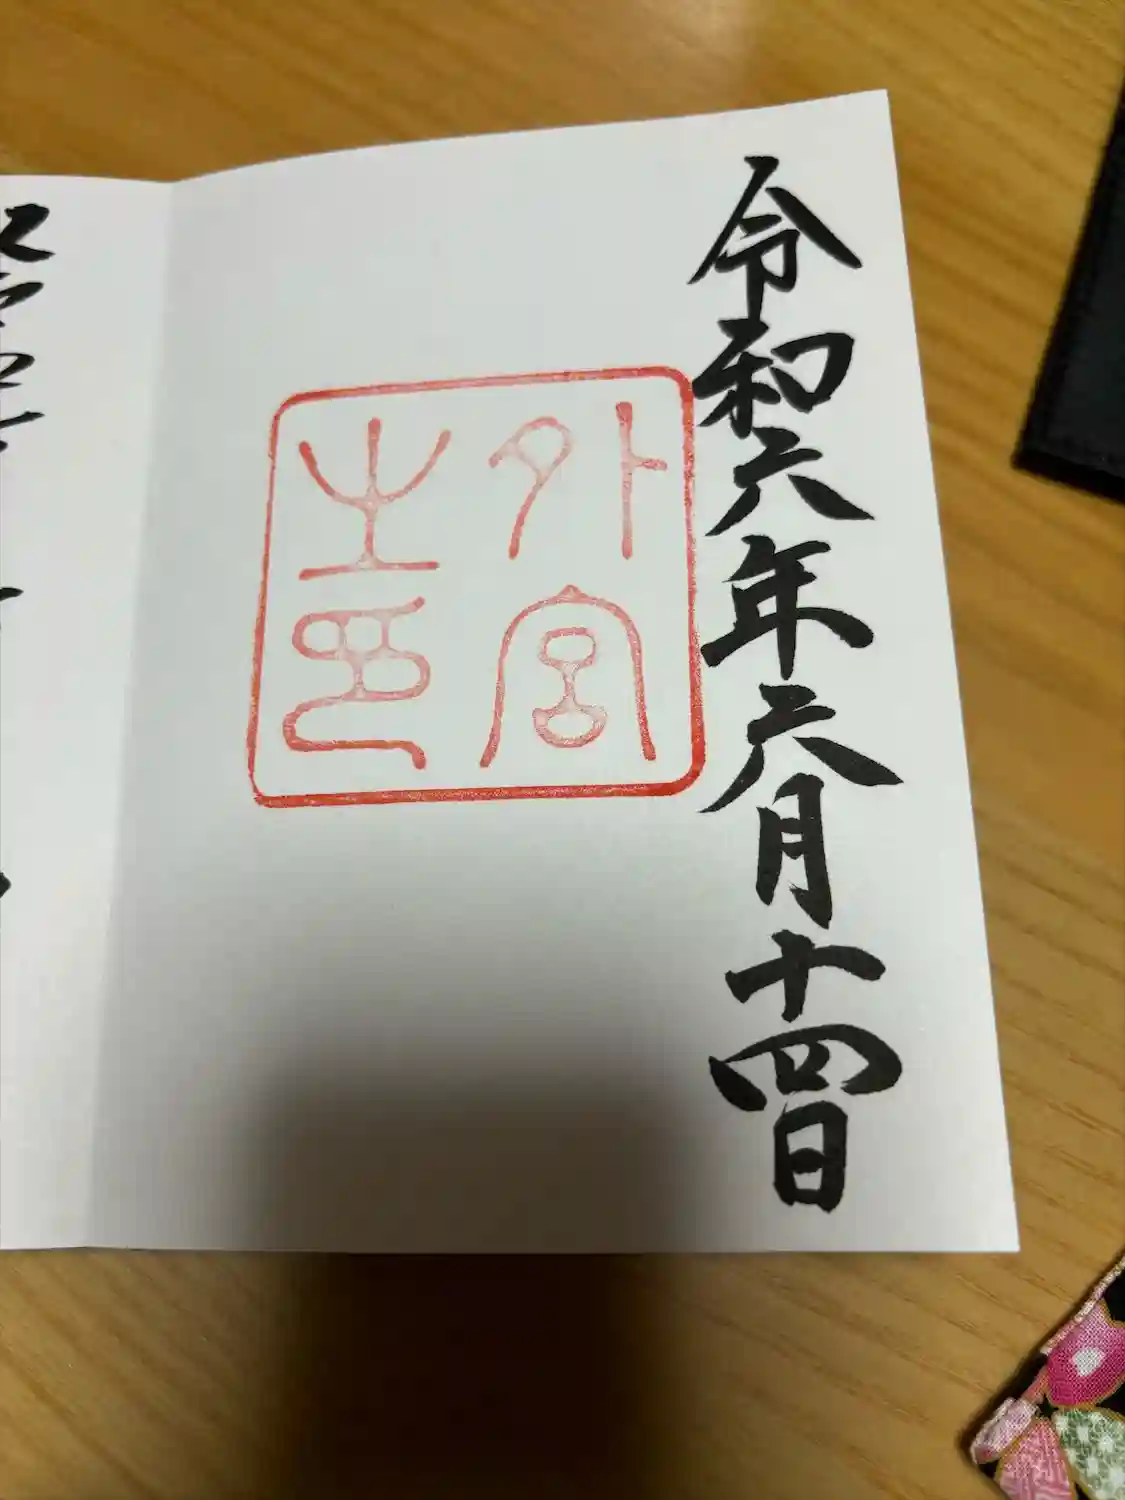 令和六年六月十四日
外宮
之印